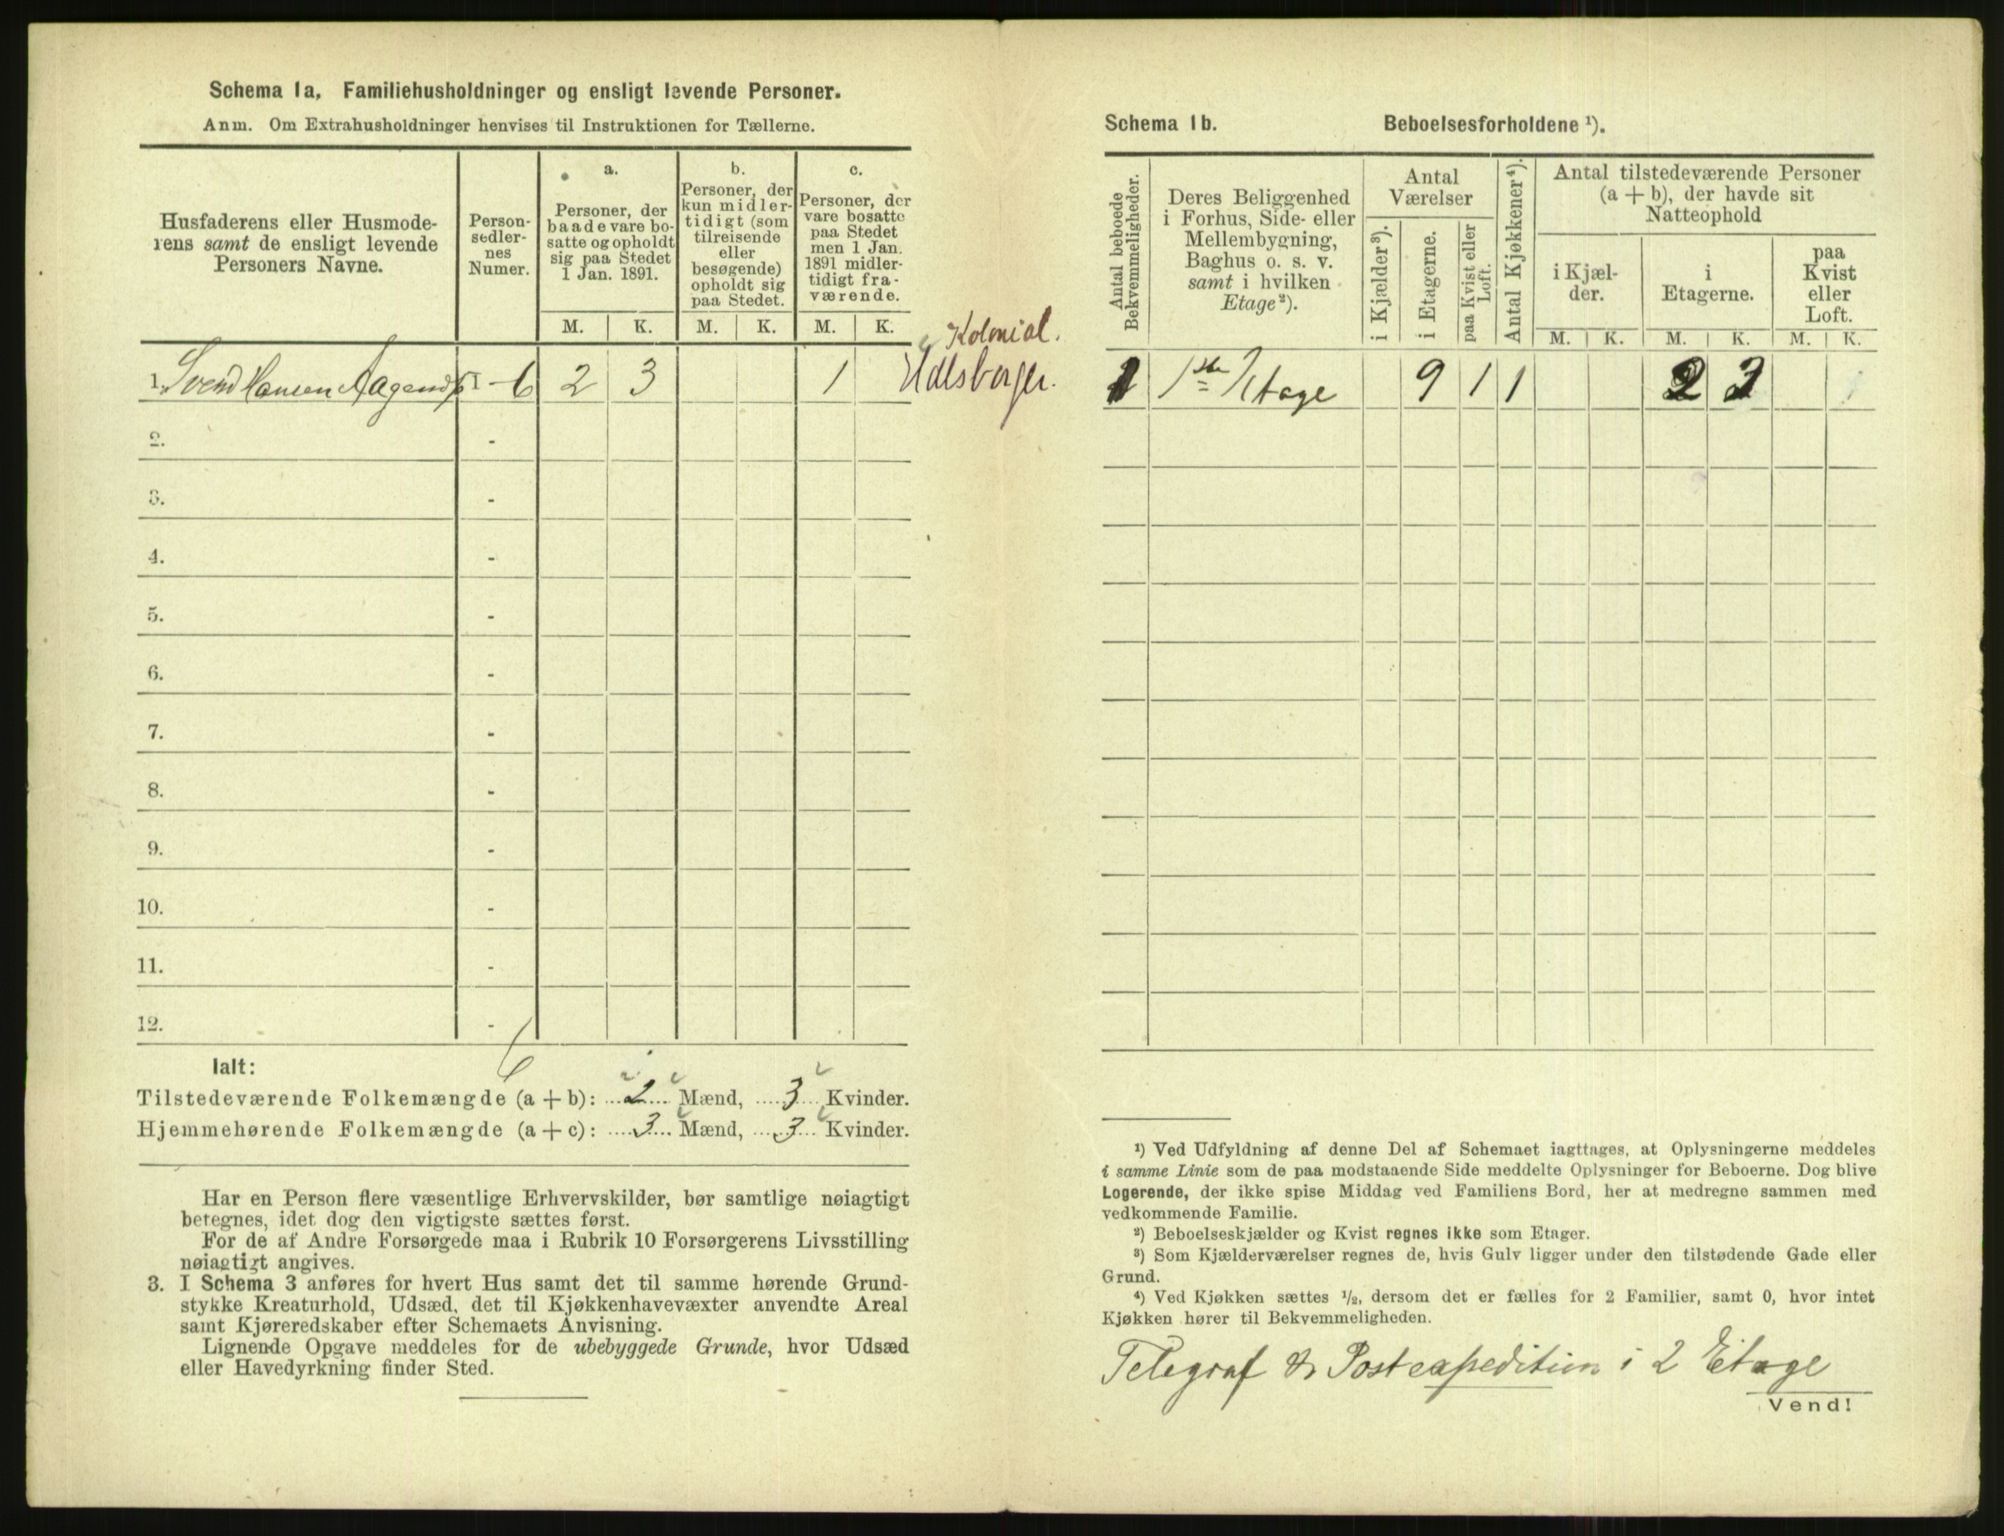 Schema 1a. Familiehusholdninger og ensligt levende Personer.
Anm. Om Extrahusholdninger henvises til Instruktionen for Tællerne.
Husfaderens eller Husmode-
rens samt de ensligt levende
Personers Navne.
Person-
sedler-
nes
Numer.
a.
Personer, der
baade vare bo-
satte og opholdt
sig paa Stedet
1 Jan. 1891.
b.
Personer, der
kun midler-
tidigt (som
tilreisende
eller
besøgende)
opholdt sig
paa Stedet.
c.
Personer, der
vare bosatte
paa Stedet
men 1 Jan.
1891 midler-
tidigt fra-
værende.
M. K. M. K. M. K.
Kolonial.
1. Svend Hansen 1 - 6 2 3 1
2. -
3. -
4. -
5. -
6. -
7. -
8. -
9. -
10. -
11. -
12. -
Ialt:
Tilstedeværende Folkemængde (a + b): 2 Mænd, 3 Kvinder.
Hjemmehørende Folkemængde (a + c): 3 Mænd, 3 Kvinder.
Har en Person flere væsentlige Erhvervskilder, bør samtlige nøiagtigt
betegnes, idet dog den vigtigste sættes først.
For de af Andre Forsørgede maa i Rubrik 10 Forsørgerens Livsstilling
nøiagtigt angives.
3. I Schema 3 anføres for hvert Hus samt det til samme hørende Grund-
stykke Kreaturhold, Udsæd, det til Kjøkkenhavevæxter anvendte Areal
samt Kjøreredskaber efter Schemaets Anvisning.
Lignende Opgave meddeles for de ubebyggede Grunde, hvor Udsæd
eller Havedyrkning finder Sted.
Schema 1b. Beboelsesforholdene ¹).
Antal beboede
Bekvemmeligheder.
Deres Beliggenhed
i Forhus, Side- eller
Mellembygning,
Baghus o. s. v.
samt i hvilken
Etage²).
Antal
Værelser
i Kjælder³).
i Etagerne.
paa Kvist eller
Loft.
Antal Kjøkkener⁴).
Antal tilstedeværende Personer
(a + b), der havde sit
Natteophold
i Kjæl-
der.
i
Etagerne.
paa
Kvist
eller
Loft.
M. K. M. K. M. K.
1 1ste Etage 9 1 1 2 3
¹) Ved Udfyldning af denne Del af Schemaet iagttages, at Oplysningerne meddeles
i samme Linie som de paa modstaaende Side meddelte Oplysninger for Beboerne. Dog blive
Logerende, der ikke spise Middag ved Familiens Bord, her at medregne sammen med
vedkommende Familie.
²) Beboelseskjælder og Kvist regnes ikke som Etager.
³) Som Kjælderværelser regnes de, hvis Gulv ligger under den tilstødende Gade eller
Grund.
⁴) Ved Kjøkken sættes ½, dersom det er fælles for 2 Familier, samt 0, hvor intet
Kjøkken hører til Bekvemmeligheden.
Telegraf & Postexpedition i 2 Etage
Vend!